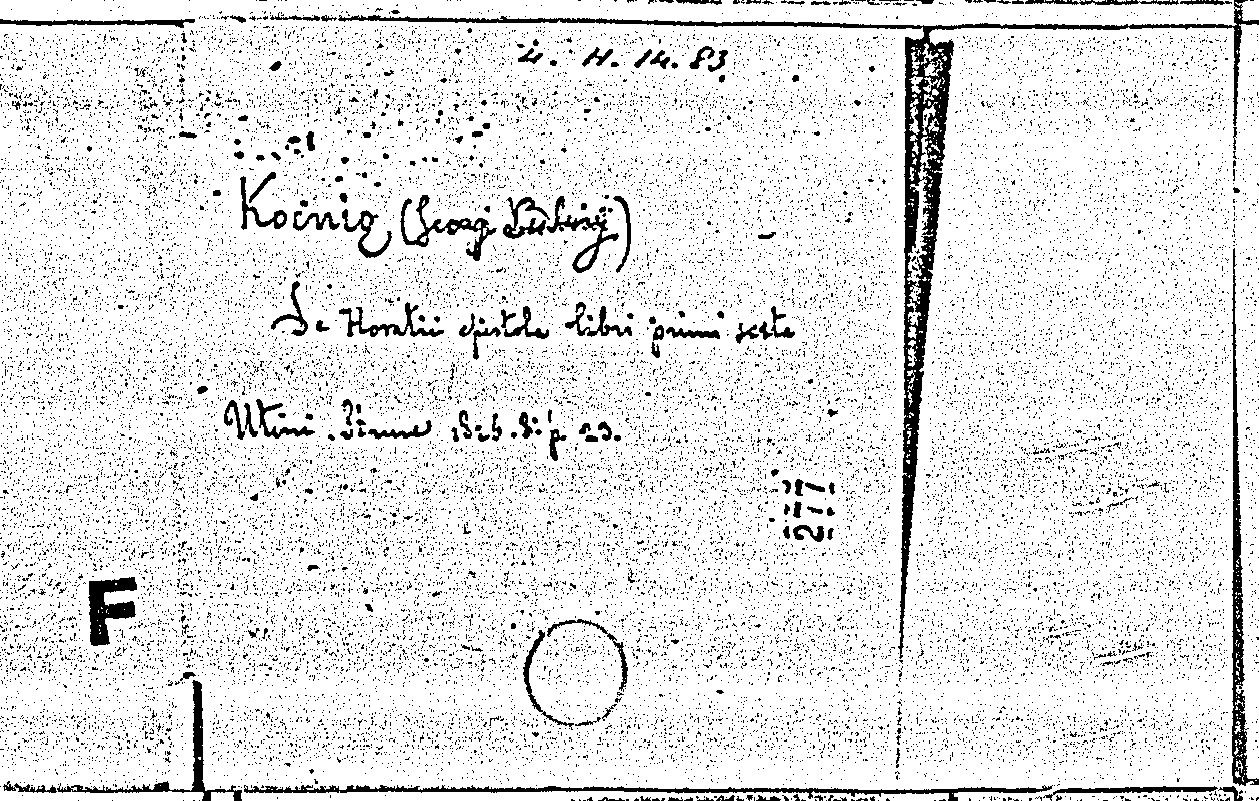 4. H. 14. 83
Koenig (Georgi Ludwig)
De Horatii epistola libri primi sexta
Utini. 1826. 8: p. 23.
277
F